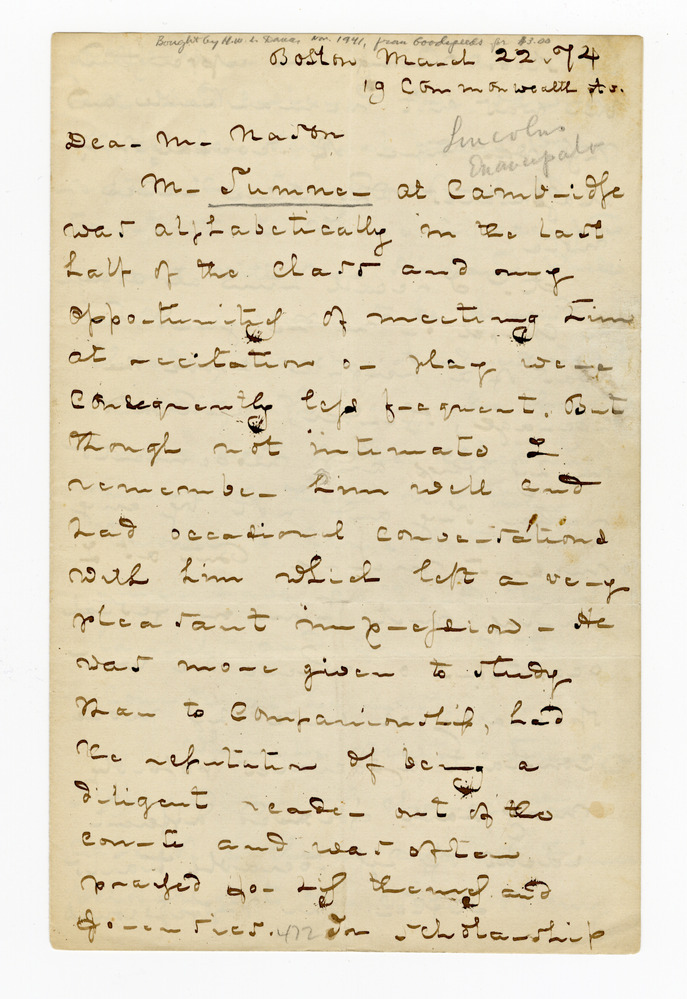 Bought by H. W. L. Dana, Nov. 1941, from Goodspeeds for $3.00
Boston March 22. 74
19 Commonwealth Av.
Dear Mr Nason
Lincolns
Emancipato
Mr Sumner at Cambridge
was alphabetically in the last
half of the class and my
opportunities of meeting him
at recitation or play were
consequently less frequent. But
though not intimate I
remember him well and
had occasional conversations
with him which left a very
pleasant impression – He
was more given to study
than to companionship, had
the reputation of being a
diligent reader out of the
course and was often
praised for his themes and
forensics. 472 In scholarship